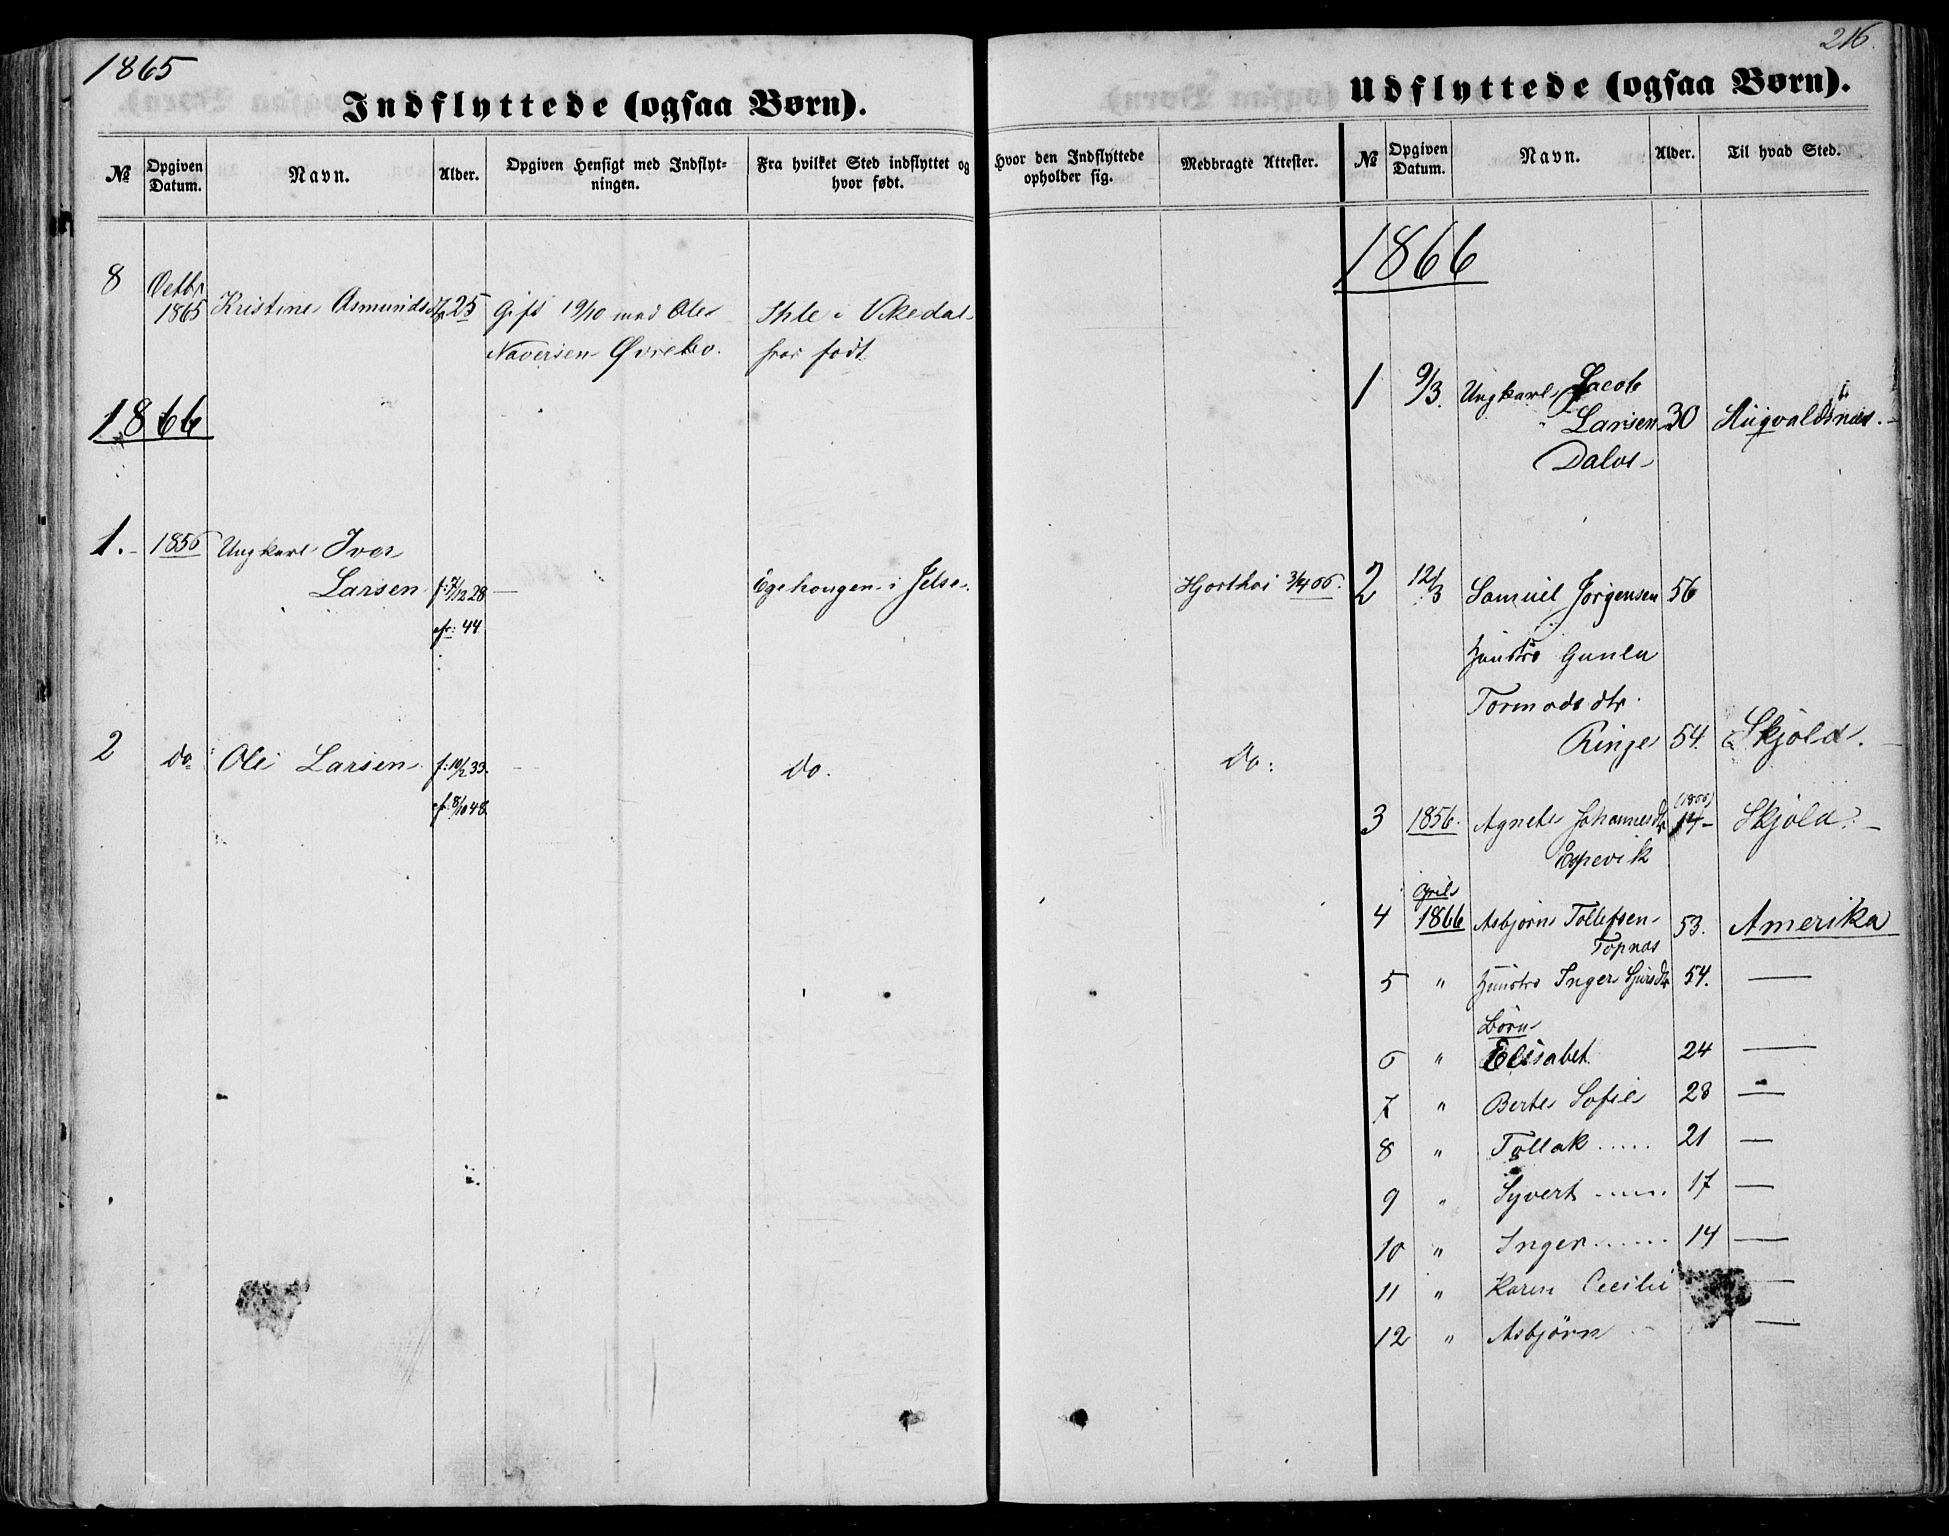 1865
Indflyttede (ogsaa Børn).
№ Opgiven Datum. Navn. Alder. Opgiven Hensigt med Indflyt-ningen. Fra hvilket Sted indflyttet og hvor født.
8 Octbr 1865 Kristine Asmundsdtr 25 Gift 19/10 med Ole Ihle i Vikedal
Øvrebø. hvor født
1866
1. 1856 Ungkarl Iver
Larsen f: 28 Egehougen i Jelse.
cfr: 44
2 do Ole Larsen f: 10/2 33. do.
cfr 8/10 48.
216.
Udflyttede (ogsaa Børn).
Hvor den Indflyttede opholder sig. Medbragte Attester. № Opgiven Datum. Navn. Alder. Til hvad Sted.
Hjorthøi
Do:
1866
1 9/3. Ungkarl Jacob
Larsen 30 Augvaldsnæs.
Dalva
2 12/3 Samuel Jørgensen 56
Hustro Gunla
Tormodsdtr
Ringe 54. Skjold.
3 1856. Agnete Johannesdtr 14 Skjold.
Espevik
4 April 1866 Asbjørn Tollefsen 53. Amerika
Topnæs
5 " Hustro Inger Sjursdtr 54. —
Børn
6 " Elisabet 24 —
7 " Berte Sofie 28 —
8 " Tollak ..... 21 —
9 " Syvert ..... 17 —
10 " Inger ...... 14 —
11 " Karen Cecilie —
12 " Asbjørn —